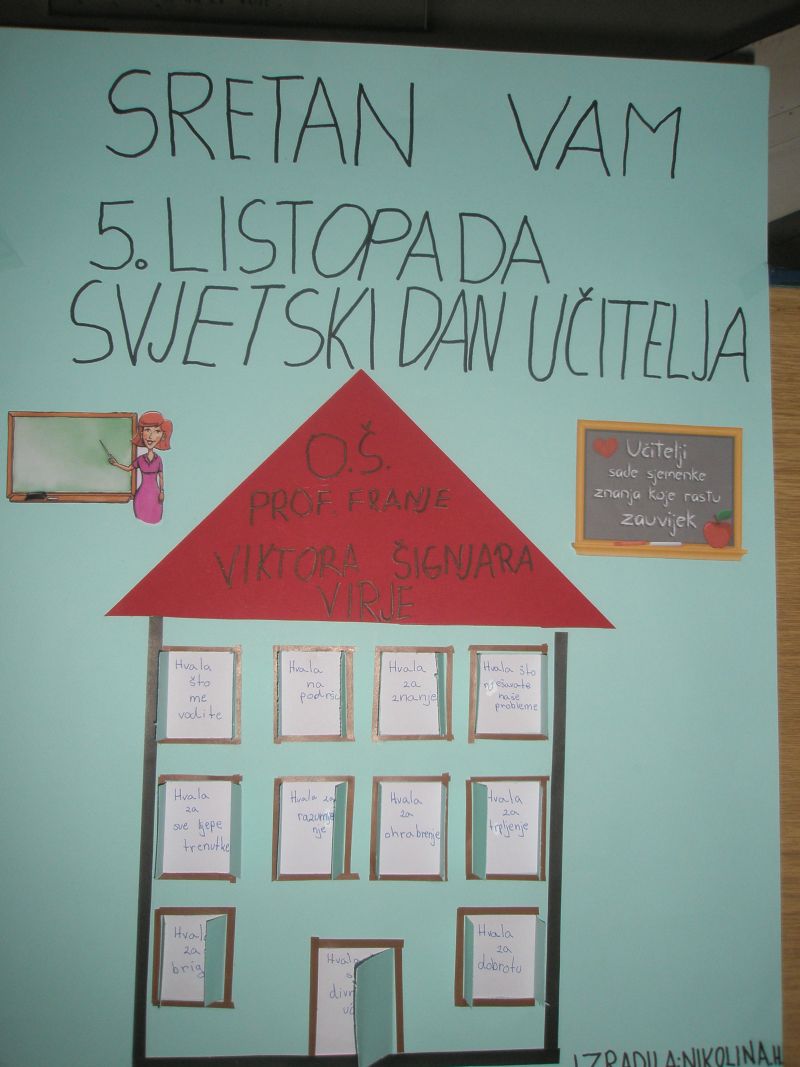 SRETAN VAM
5. LISTOPADA
SVJETSKI DAN UČITELJA
Učitelji
sade sjemenke
znanja koje rastu
zauvijek
O.Š.
PROF. FRANJE
VIKTORA ŠIGNJARA
VIRJE
Hvala
što
me
vodite
Hvala
na
Hvala
za
znanje
Hvala što
naše
probleme
Hvala
za
sve lijepe
trenutke
Hvala za
Hvala
za
ohrabrenje
Hvala
za
trpljenje
Hvala
za
Hvala
za
dobrotu
Hvala
IZRADILA: NIKOLINA.H